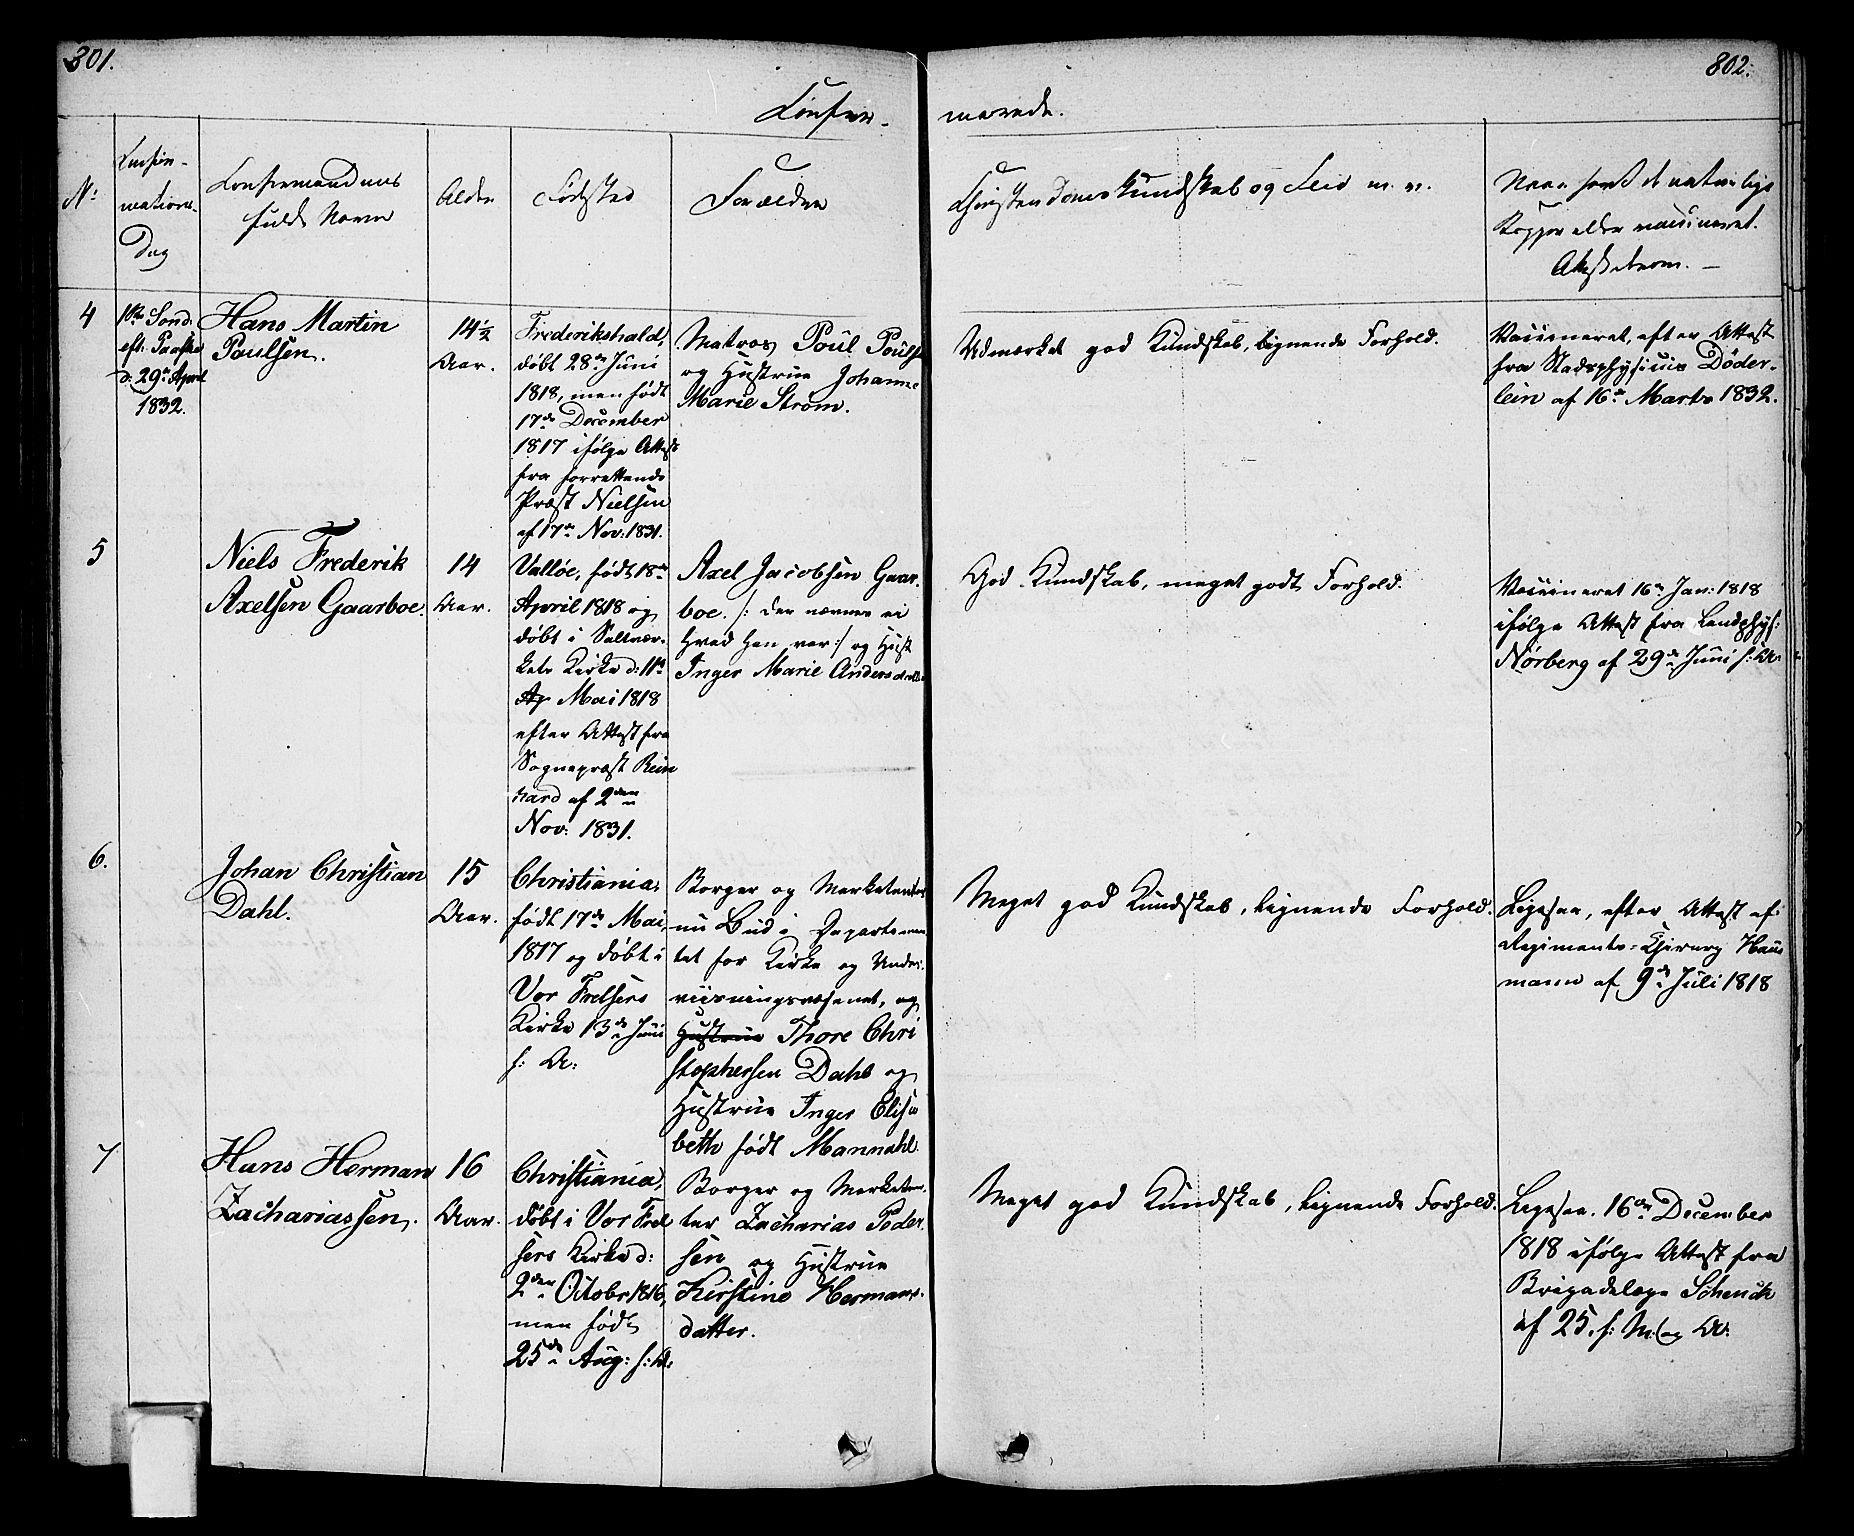 801.
802.
Confir-
merede.
No
Confir-
mations-
Dag
Confirmandens
fulde Navn
Alder
Fødested
Forældre
Christendomskundskab og Flid m. v.
Naar havt de naturlige
Kopper eller vaccineret.
Attest derom. —
4
1ste Sond:
eft: Paaske
d: 29de April
1832.
Hans Martin
Paulsen.
14½
Aar.
Frederikshald,
døbt 28de Juni
1818, men født
17de December
1817 ifølge Attest
fra forrettende
Præst Nielsen
af 17de Nov: 1831.
Matros Poul Pouls
og Hustrue Johanne
Marie Strøm.
Udmærket god Kundskab, lignende Forhold.
Vaccineret, efter Attest
fra Stadsphysicus Døder-
lein af 16de Marts 1832.
5
Niels Frederik
Axelsen Gaarboe.
14
Aar.
Valløe, født 18de
April 1818 og
døbt i Saltvær-
kets Kirke d: 11te
Ap Mai 1818
efter Attest fra
Sognepræst Rein
hard af 2den
Nov: 1831.
Axel Jacobsen Gaar-
boe. /: der nævnes ei
hvad han var :/ og Hust
Inger Marie Andersdatter
God Kundskab, meget godt Forhold.
Vaccineret 16de Jan: 1818
ifølge Attest fra Landphys:
Nørberg af 29de Juni s: A.
6.
Johan Christian
Dahl.
15
Aar.
Christiania,
født 17de Mai
1817 og døbt i
Vor Frelsers
Kirke 13de Juni
s: A:
Borger og Marketenter
nu Bud i Departemen
tet for Kirke og Under-
viisningsvæsenet, og
Hustrue Thore Chri
stophersen Dahl og
Hustrue Inger Elisa
beth født Manndahl.
Meget god Kundskab, lignende Forhold.
Ligesaa, efter Attest af
Regiments-Chirurg Haus
mann af 9de Juli 1818
7
Hans Herman
Zachariassen.
16
Aar.
Christiania,
døbt i Vor Frel
sers Kirke d:
2den Octobr 1816,
men født
25de Aug: s: A:
Borger og Marketen-
ter Zacharias Peder-
sen og Hustrue
Kirstine Hermans-
datter.
Meget god Kundskab, lignende Forhold.
Ligesaa. 16de December
1818 ifølge Attest fra
Brigadelæge Schenck
af 25. s: M: og A: